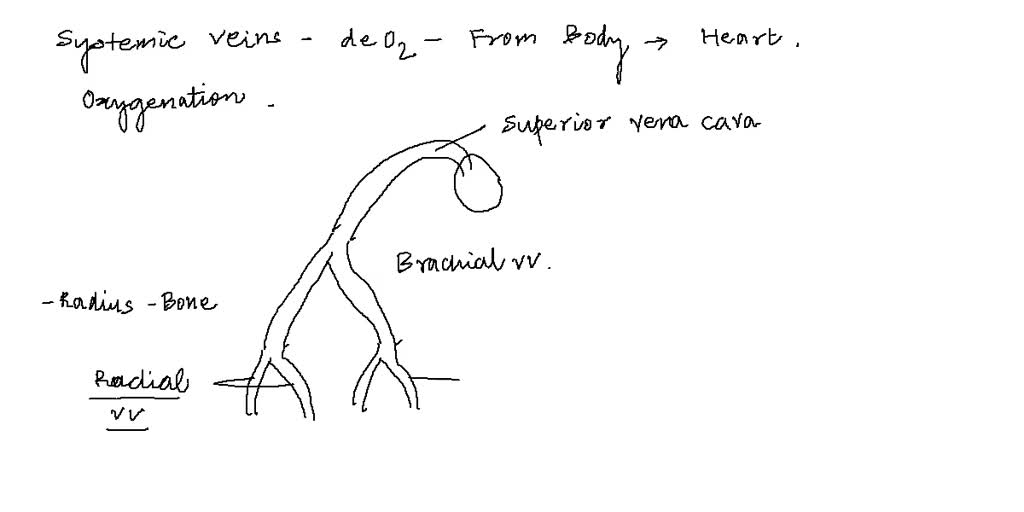 Systemic veins - deO2 - From Body → Heart.
Oxygenation -
Superior vena cava
Brachial vv.
- Radius - Bone
Radial
vv